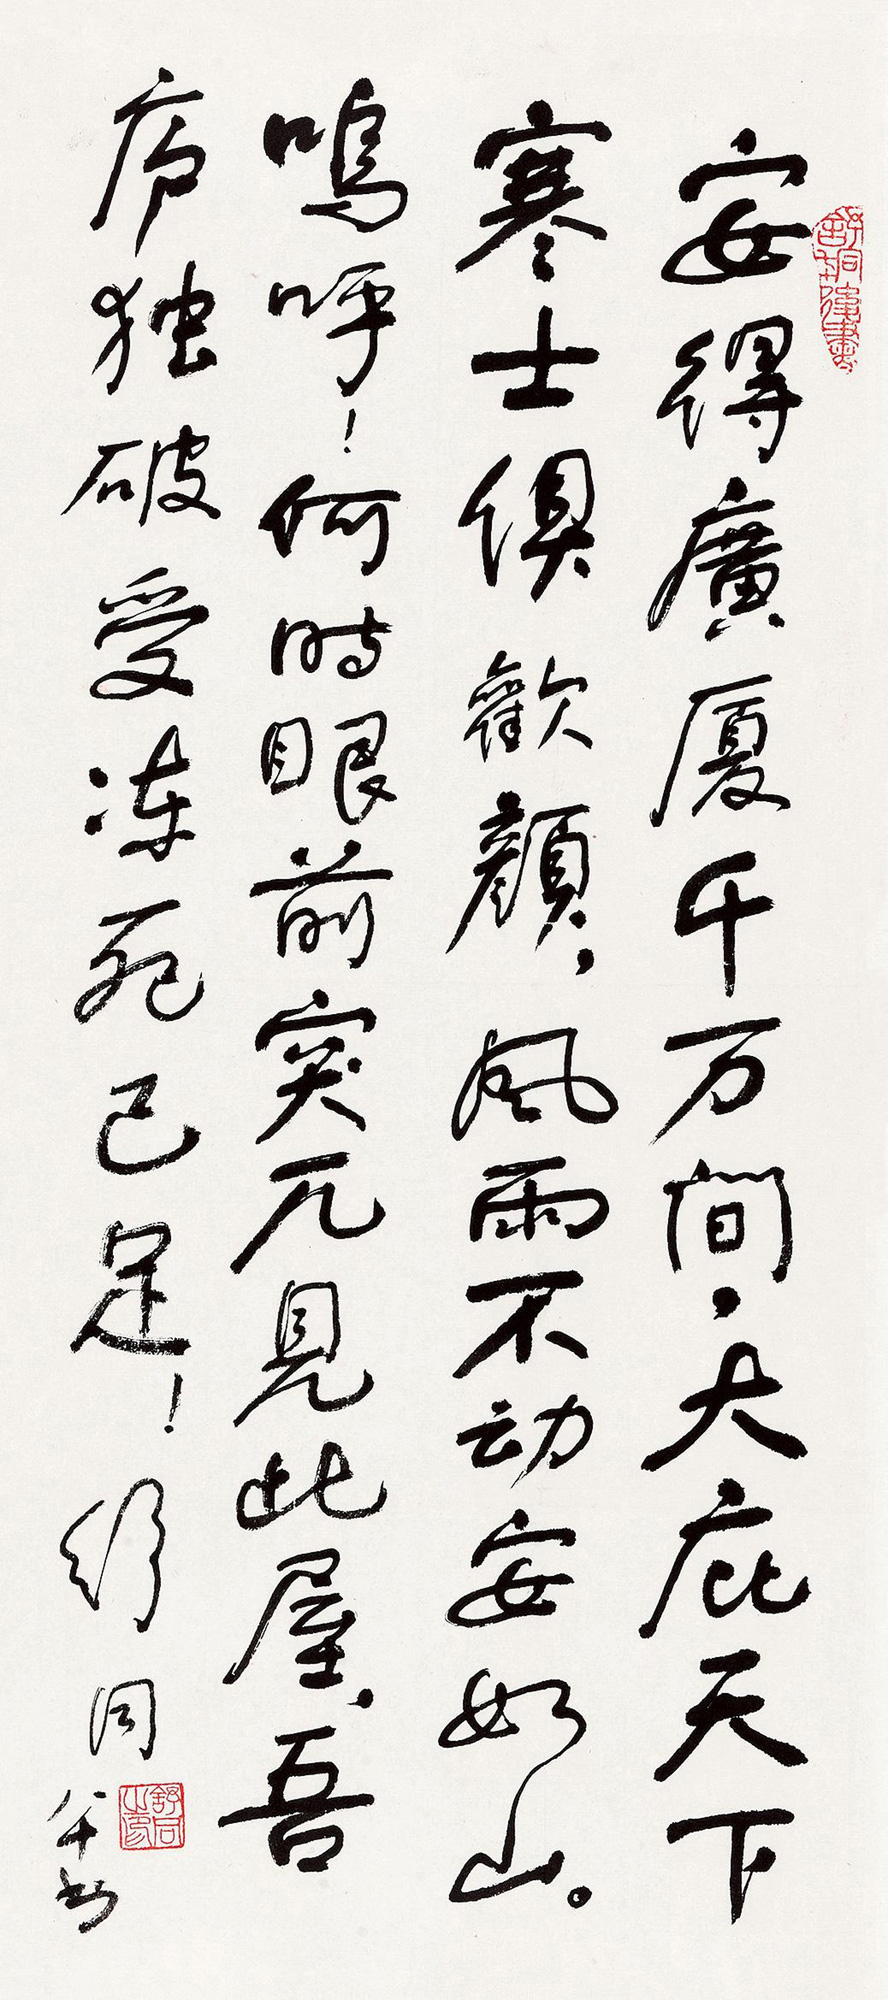 安得廣厦千万间，大庇天下
寒士俱歡顔，风雨不动安如山。
嗚呼！何时眼前突兀見此屋，吾
庐独破受冻死已足！舒同
八十书
舒同之印